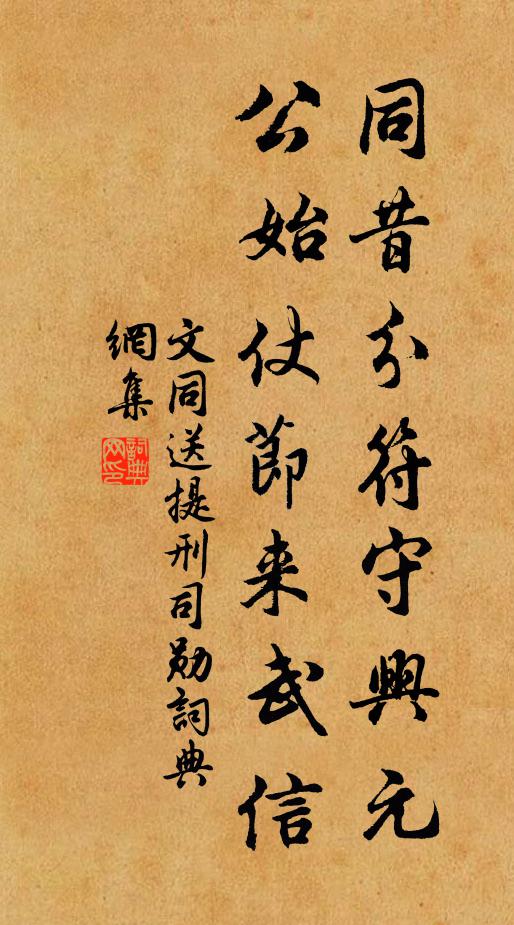 同昔分符守興元
公始仗節来武信
文同送提刑司勛詞典
網集
詞典网印